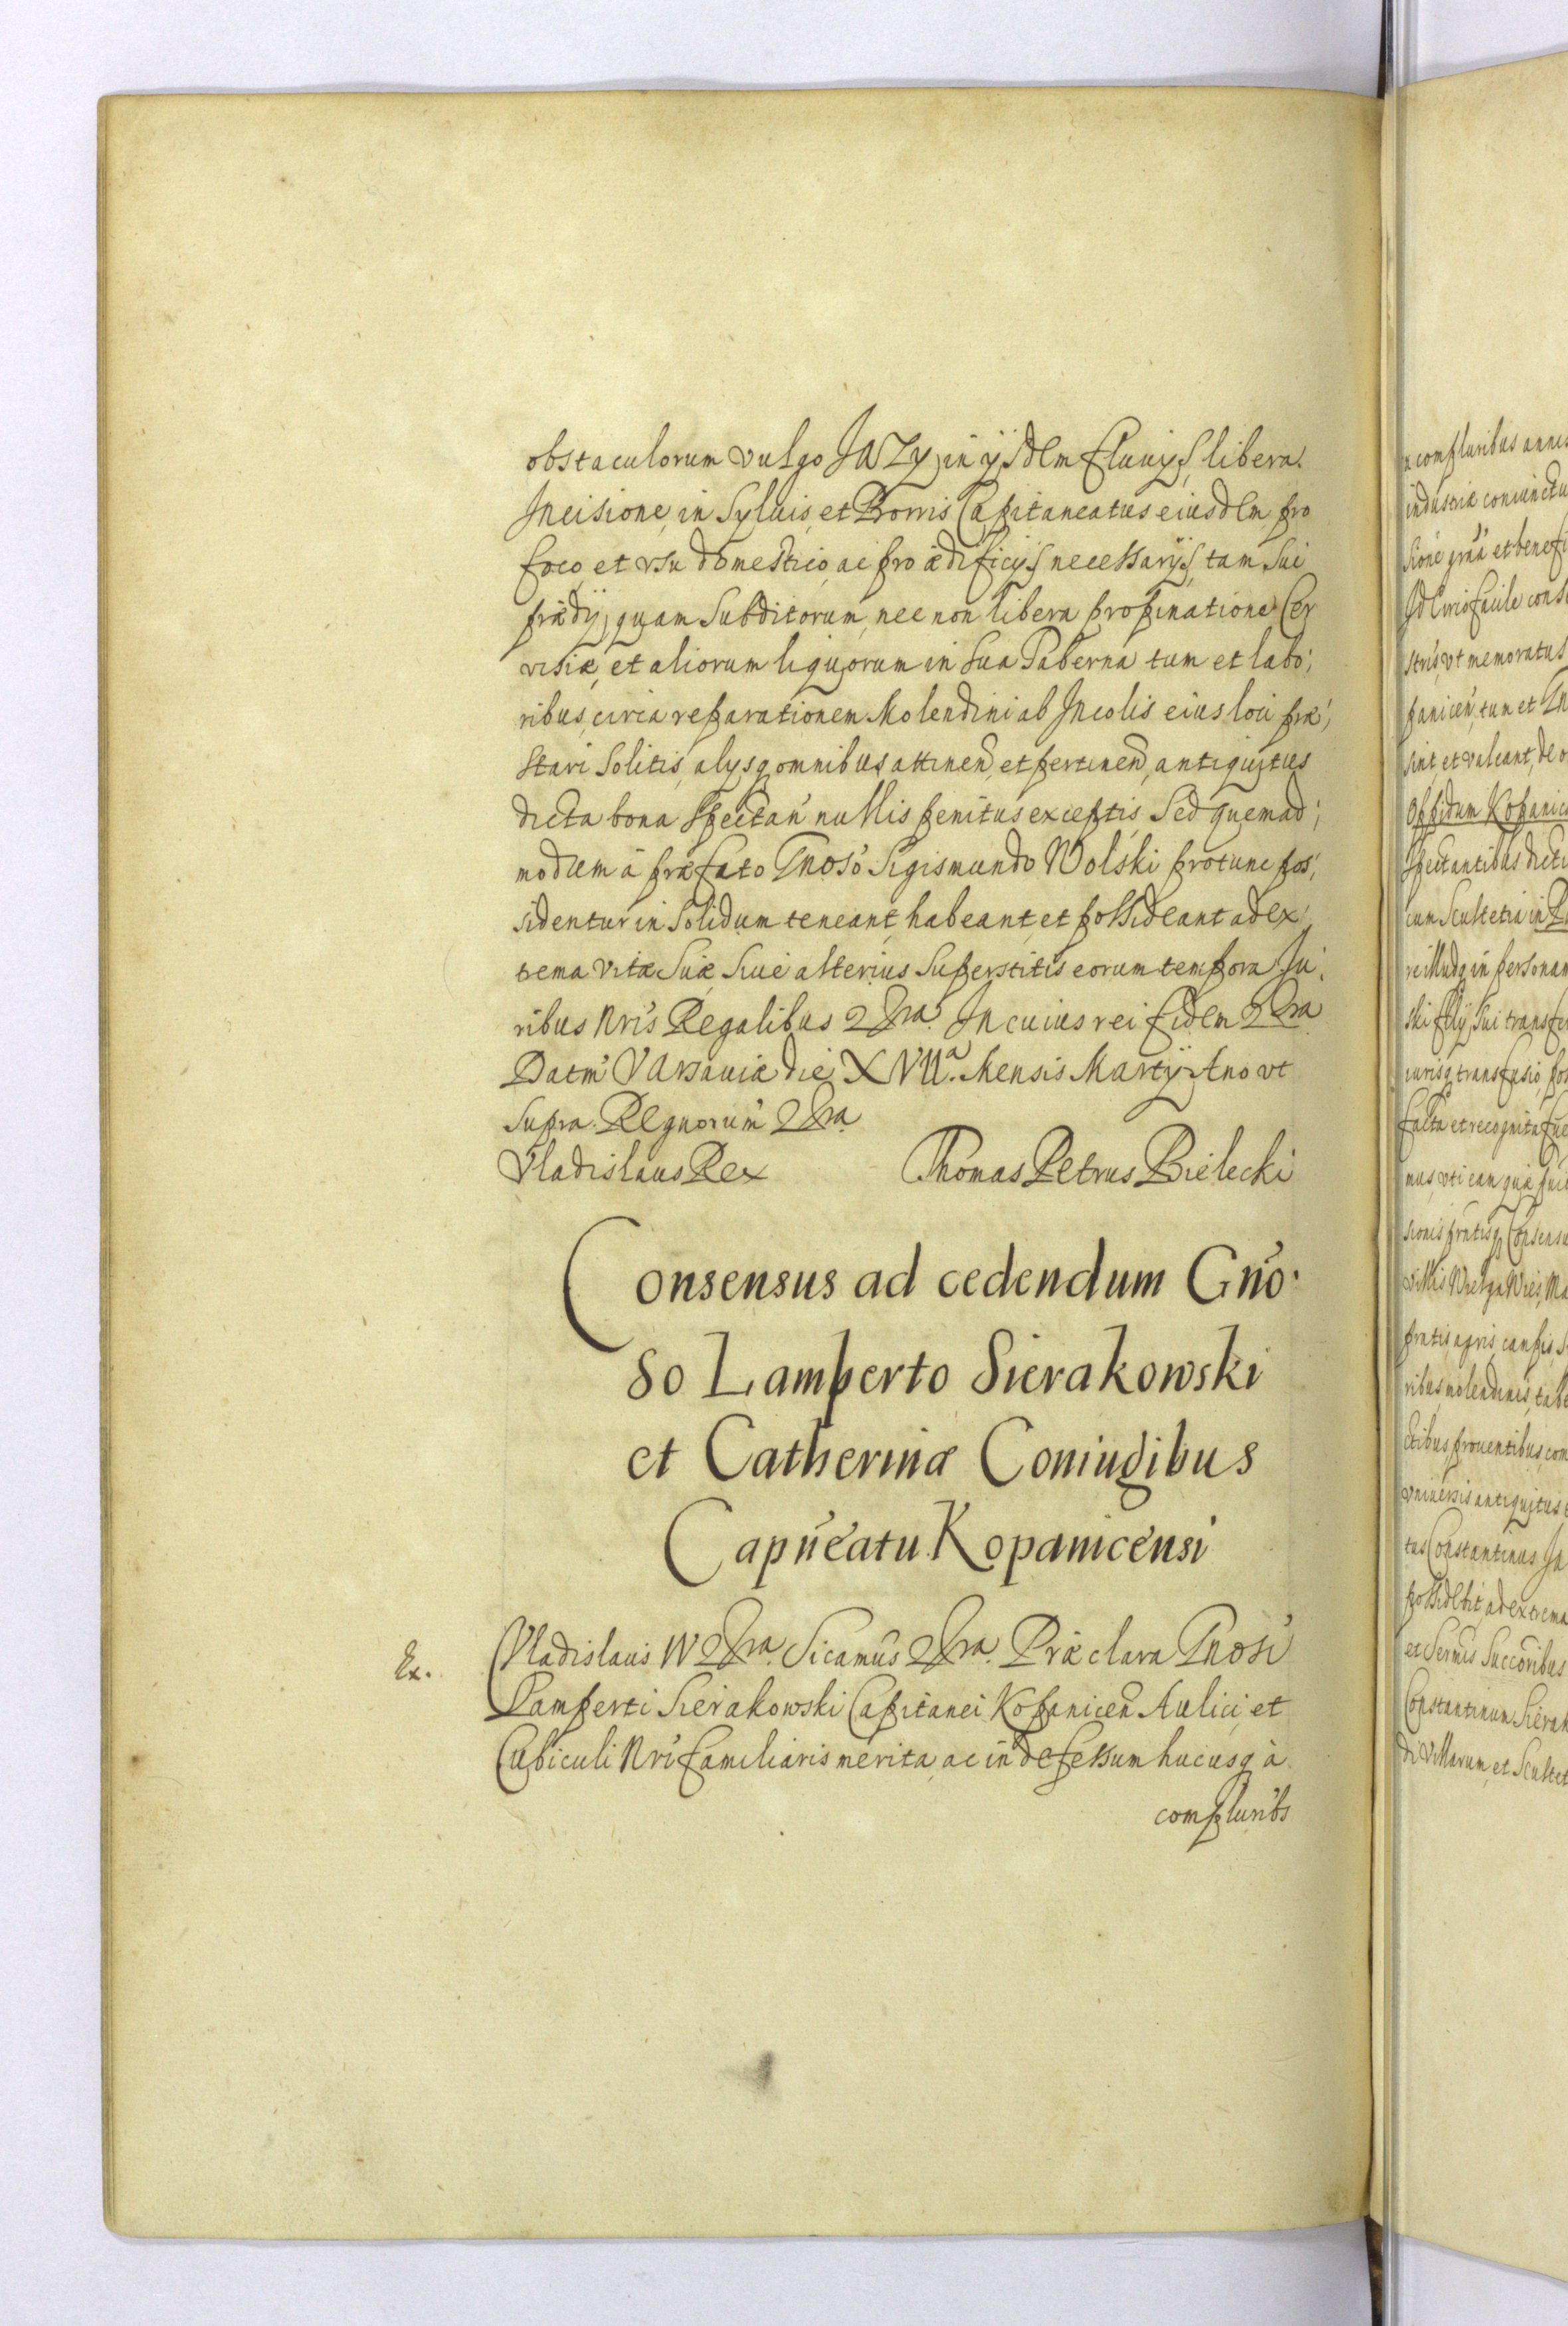 obstaculorum vulgo JAZy, in ijsdem fluuijs, libera
Incisione, in Syluis, et Borris Capitaneatus eiusdem pro
foco, et vsu domestico, ac pro ædificijs necessarijs, tam sui
prædij, quam Subditorum, nec non libera propinatione Cer
visiæ, et aliorum liquorum in sua Taberna tum et labo;
ribus, circa reparationem Molendini ab Incolis eius loci præ;
stari solitis, alysq omnibus attinen, et pertinen, antiquitus
dicta bona spectan nullis penitus exceptis, Sed quemad;
modum à præfato Gnoso Sigismundo Wolski protunc pos;
sidentur in solidum teneant, habeant, et possideant ad ex;
trema vitæ suæ, siue alterius superstitis eorum tempora Ju;
ribus nris Regalibus &ra. In cuius rei fidem &ra
Datm Varsauiæ die XVIIa. Mensis Martij Ano vt
supra. Regnorum &ra
Vladislaus Rex Thomas Petrus Bielecki
Consensus ad cedendum Gno
so Lamperto Sierakowski
et Catherinæ Coniugibus
Capneatu Kopanicensi
Ex. Vladislaus IV &ra. Sicamus &ra. Præclara Gnosi
Lamperti Sierakowski Capitanei Kopanicen Aulici, et
Cubiculi Nri familiaris merita, ac indefessum hucusq à
compluribs
a compluribus annis
stris, vt memoratus
panicen, tum et
sint, et valeant, de
Oppidum Kopanic
spectantibus dicti
cum Scultetia in
ski filij sui transfe
iurisq transfusio, pos
facta et recognita fue
pratis, agris, campis, s
ribus, molendinis, tab
ctibus prouentibus, com
vniuersis antiquitus
tus Constantinus
possidebit, ad extrema
Constantinum Sierak
di Villarum, et Scultet